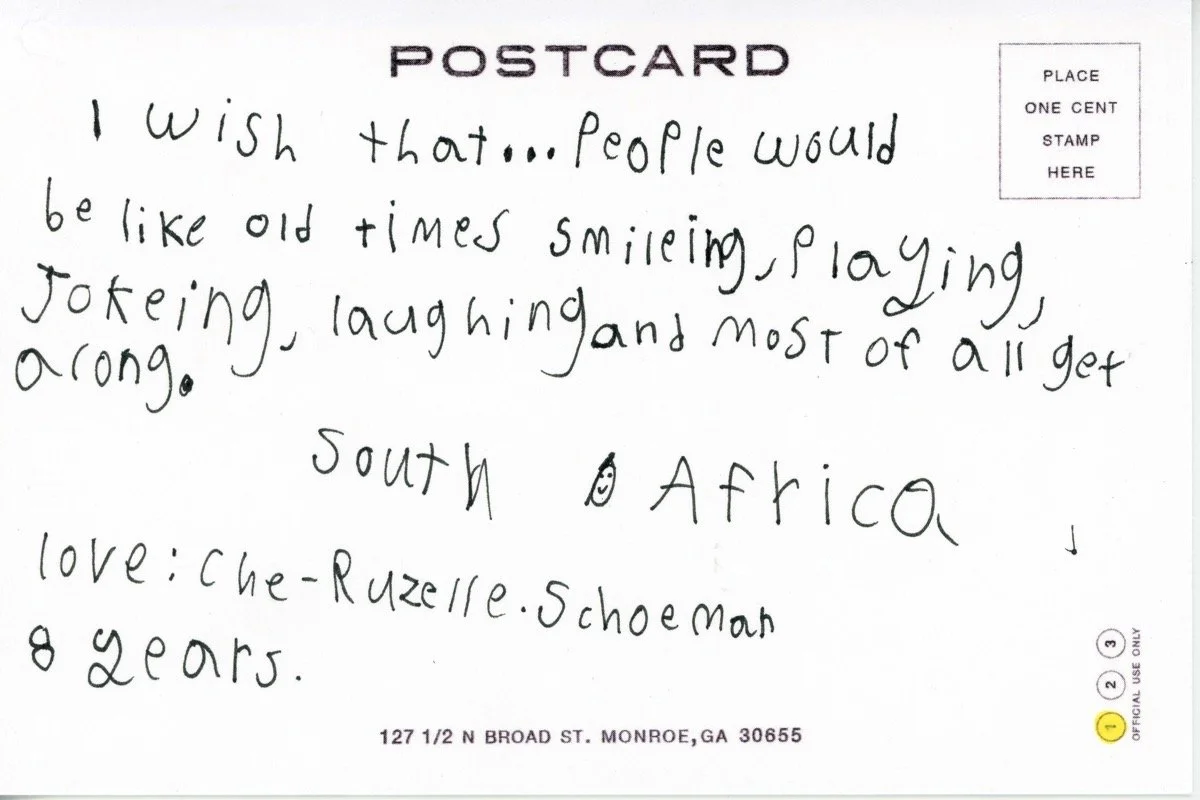 POSTCARD
PLACE
ONE CENT
STAMP
HERE
I wish that... People would
be like old times smileing, Playing,
Jokeing, laughing and most of all get
arong.
South Africa
love: Che-Ruzelle. Schoeman
8 years.
1 2 3
OFFICIAL USE ONLY
127 1/2 N BROAD ST. MONROE, GA 30655